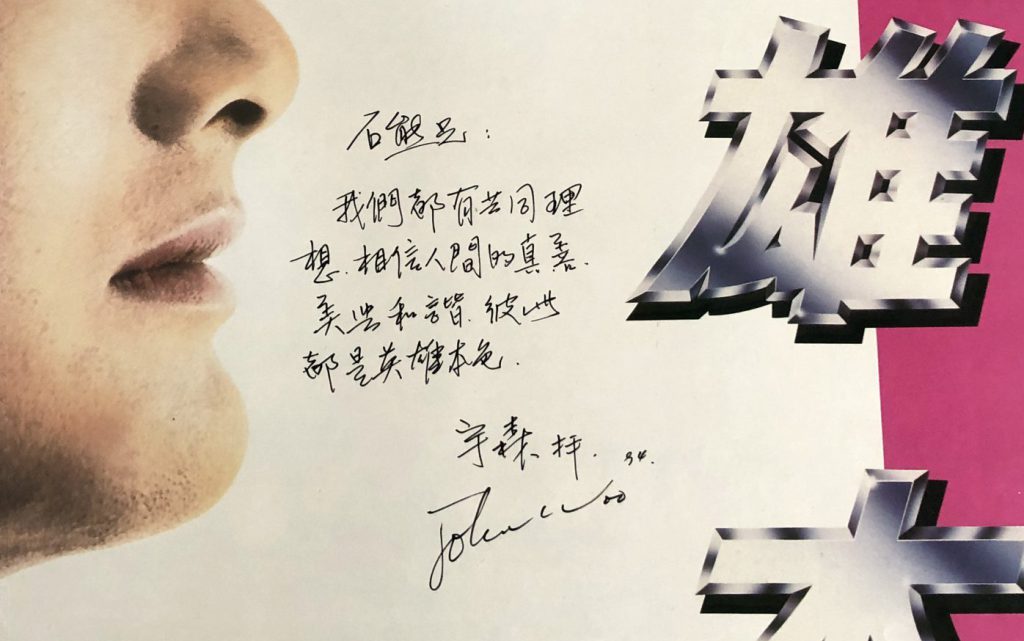 石熊兄：
我們都有共同理
想.相信人間的真善.
美與和諧.彼此
都是英雄本色.
宇森 拜. 94.
John Woo
雄
本